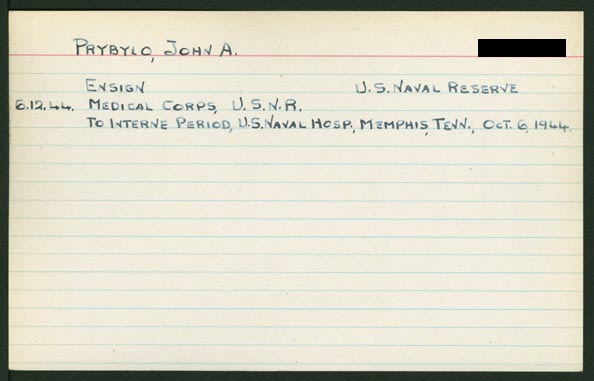 PRYBYLO, JOHN A.
ENSIGN U.S. NAVAL RESERVE
6.12.44. MEDICAL CORPS, U.S.N.R.
TO INTERNE PERIOD, U.S. NAVAL HOSP., MEMPHIS, TENN., OCT. 6, 1944.